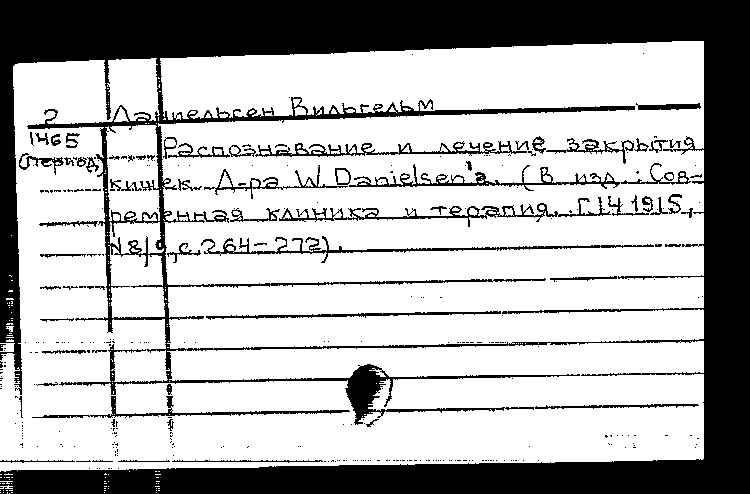 2 Даниельсен Вильгельм
1465
(период.) Распознавание и лечение закрытия
кишек Д-ра W. Danielsen'a. (В изд.: Сов-
ременная клиника и терапия. Г.14 1915,
N8/9, с. 264-272).